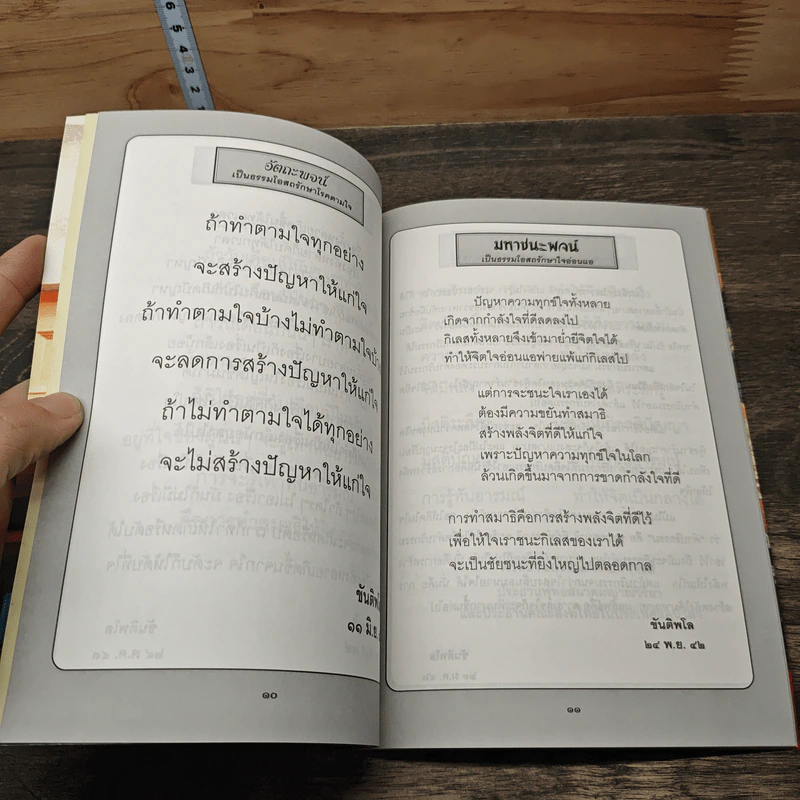 6
5
4
3
2
อัตถะพจน์
เป็นธรรมโอสถรักษาโรคตามใจ
ถ้าทำตามใจทุกอย่าง
จะสร้างปัญหาให้แก่ใจ
ถ้าทำตามใจบ้างไม่ทำตามใจบ้าง
จะลดการสร้างปัญหาให้แก่ใจ
ถ้าไม่ทำตามใจได้ทุกอย่าง
จะไม่สร้างปัญหาให้แก่ใจ
ขันติพโล
๑๑ มิ.ย.
๑๐
มหาชนะพจน์
เป็นธรรมโอสถรักษาใจอ่อนแอ
ปัญหาความทุกข์ใจทั้งหลาย
เกิดจากกำลังใจที่ดีลดลงไป
กิเลสทั้งหลายจึงเข้ามาย่ำยีจิตใจได้
ทำให้จิตใจอ่อนแอพ่ายแพ้แก่กิเลสไป
แต่การจะชนะใจเราเองได้
ต้องมีความขยันทำสมาธิ
สร้างพลังจิตที่ดีให้แก่ใจ
เพราะปัญหาความทุกข์ใจในโลก
ล้วนเกิดขึ้นมาจากการขาดกำลังใจที่ดี
การทำสมาธิคือการสร้างพลังจิตที่ดีไว้
เพื่อให้ใจเราชนะกิเลสของเราได้
จะเป็นชัยชนะที่ยิ่งใหญ่ไปตลอดกาล
ขันติพโล
๒๔ พ.ย. ๔๒
๑๑